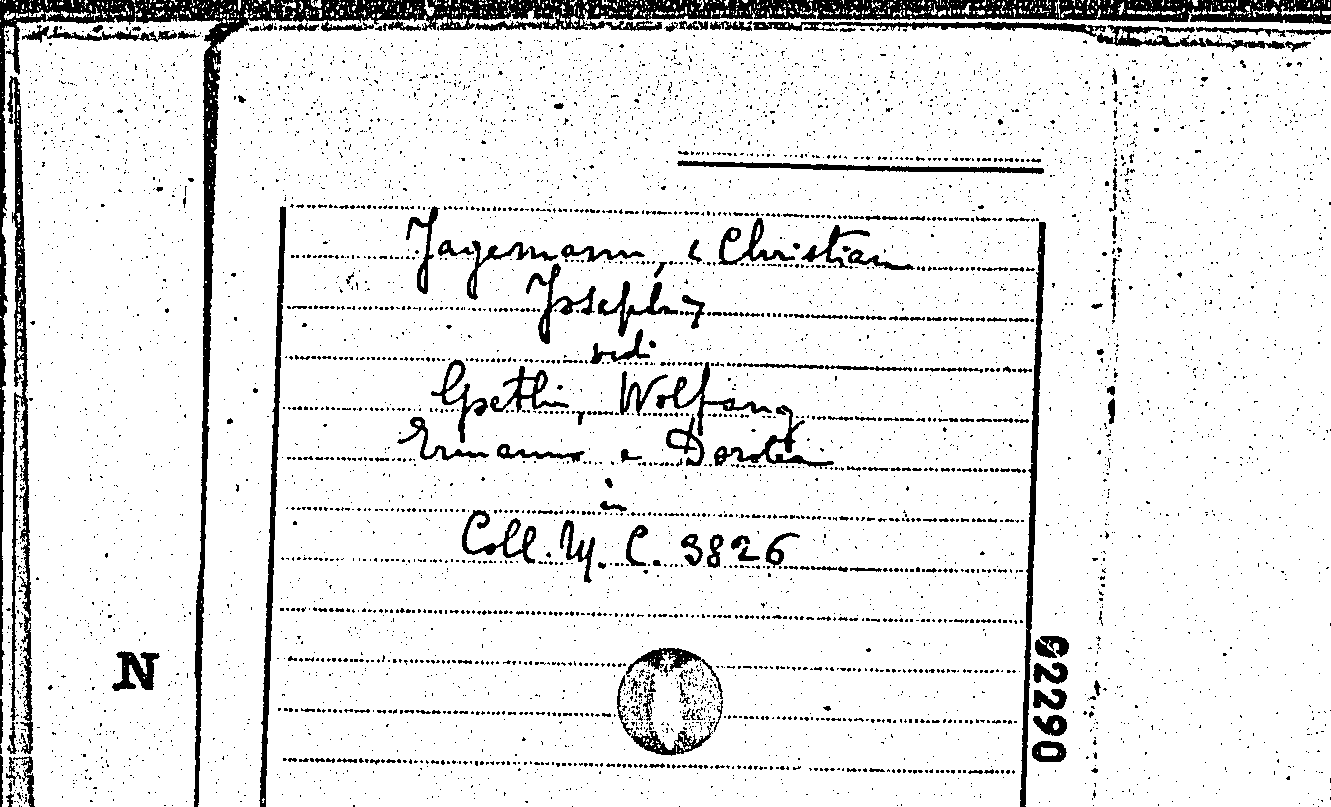 Jagemann, Christian
Joseph,
vedi
Goethe, Wolfang
Ermanno e Dorotea
in
Coll. M. C. 3826
N
02290